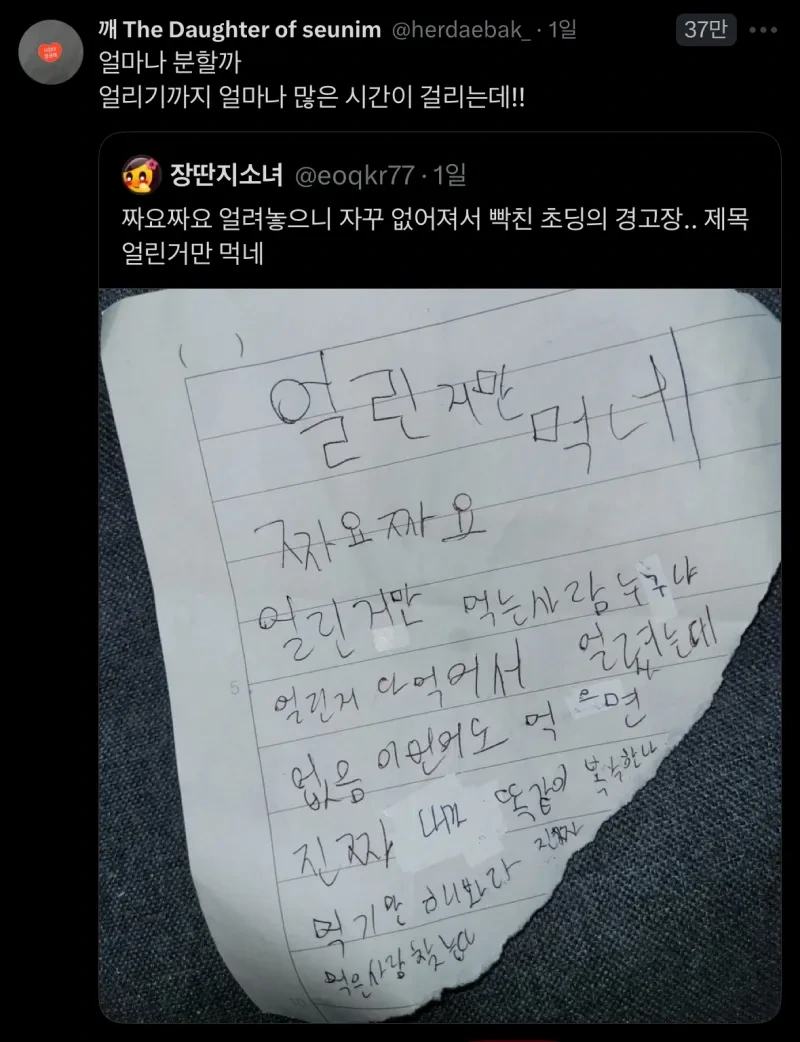 깨 The Daughter of seunim @herdaebak_ · 1일
37만
얼마나 분할까
얼리기까지 얼마나 많은 시간이 걸리는데!!
장딴지소녀 @eoqkr77 · 1일
짜요짜요 얼려놓으니 자꾸 없어져서 빡친 초딩의 경고장.. 제목
얼린거만 먹네
( )
얼린거만 먹네
짜요짜요
얼린거만 먹는사람 누구냐
5
얼린거 다먹어서 얼렸는데
없음 이번에도 먹으면
진짜 내가 똑같이 복수한다
진짜
먹기만 해봐라
먹은사람 찾는다
10